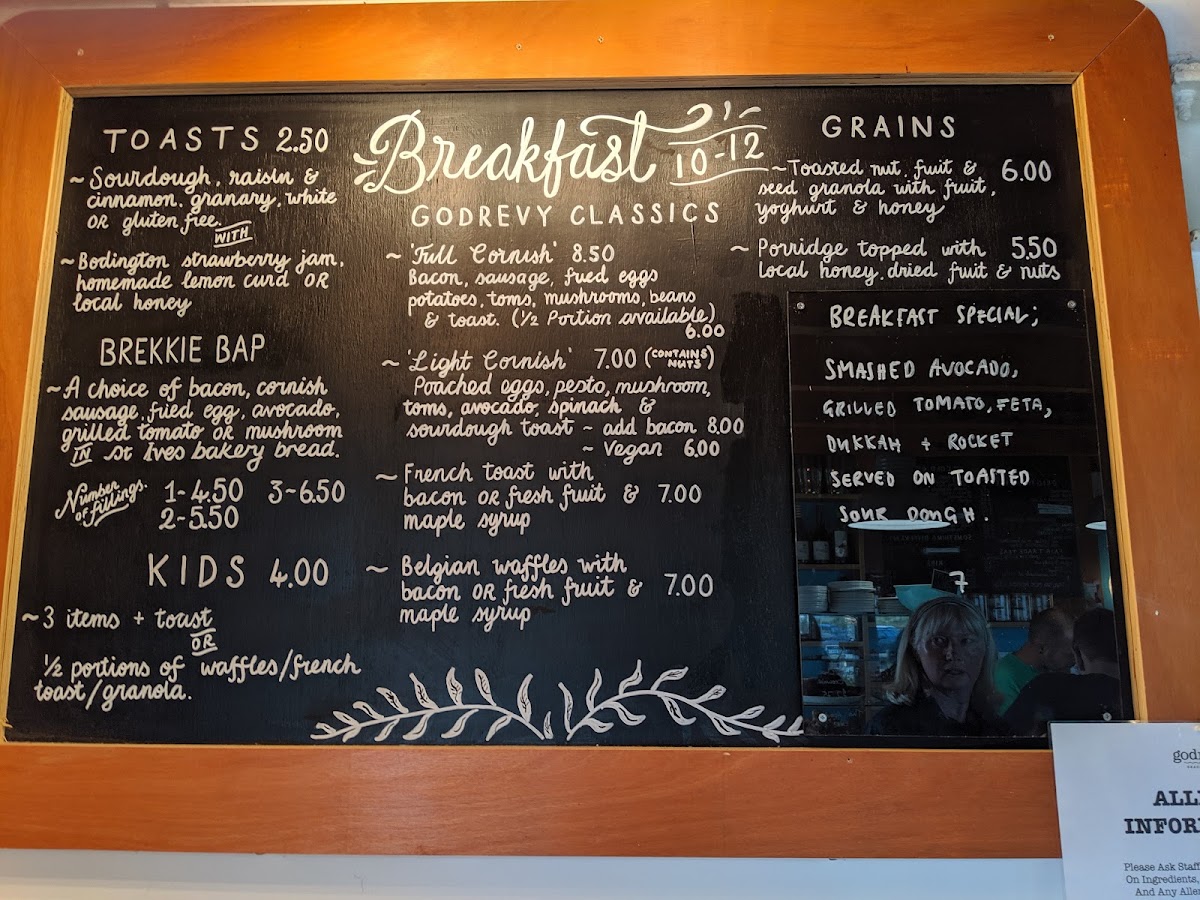 TOASTS 2.50
~ Sourdough, raisin &
cinnamon, granary, white
OR gluten free.
WITH
~ Bodington strawberry jam,
homemade lemon curd OR
local honey
BREKKIE BAP
~ A choice of bacon, cornish
sausage, fried egg, avocado,
grilled tomato OR mushroom
IN St Ives bakery bread.
Number of fillings.
1~4.50 3~6.50
2~5.50
KIDS 4.00
~ 3 items + toast
OR
1/2 portions of waffles/french
toast/granola.
Breakfast 10-12
GODREVY CLASSICS
~ 'Full Cornish' 8.50
Bacon, sausage, fried eggs
potatoes, toms, mushrooms, beans
& toast. (1/2 Portion available)
6.00
~ 'Light Cornish' 7.00 (CONTAINS NUTS)
Poached eggs, pesto, mushroom,
toms, avocado, spinach &
sourdough toast ~ add bacon 8.00
~ Vegan 6.00
~ French toast with
bacon OR fresh fruit & 7.00
maple syrup
~ Belgian waffles with
bacon OR fresh fruit & 7.00
maple syrup
GRAINS
~ Toasted nut, fruit & 6.00
seed granola with fruit,
yoghurt & honey
~ Porridge topped with 5.50
local honey, dried fruit & nuts
BREAKFAST SPECIAL;
SMASHED AVOCADO,
GRILLED TOMATO, FETA,
DUKKAH + ROCKET
SERVED ON TOASTED
SOUR DOUGH.
7
Please Ask Staff
On Ingredients,
And Any